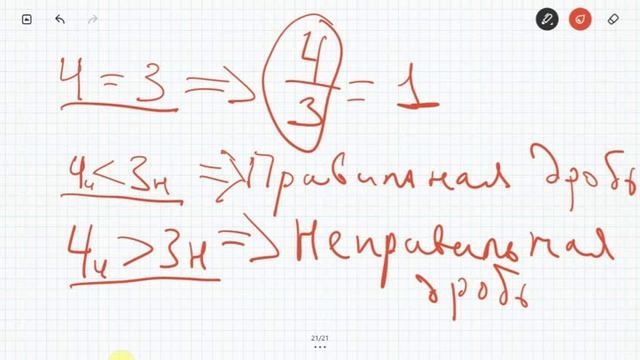 4 = 3 => 4/3 = 1
4ч < 3н => Правильная дробь
4ч > 3н => Неправильная
дробь
21/21